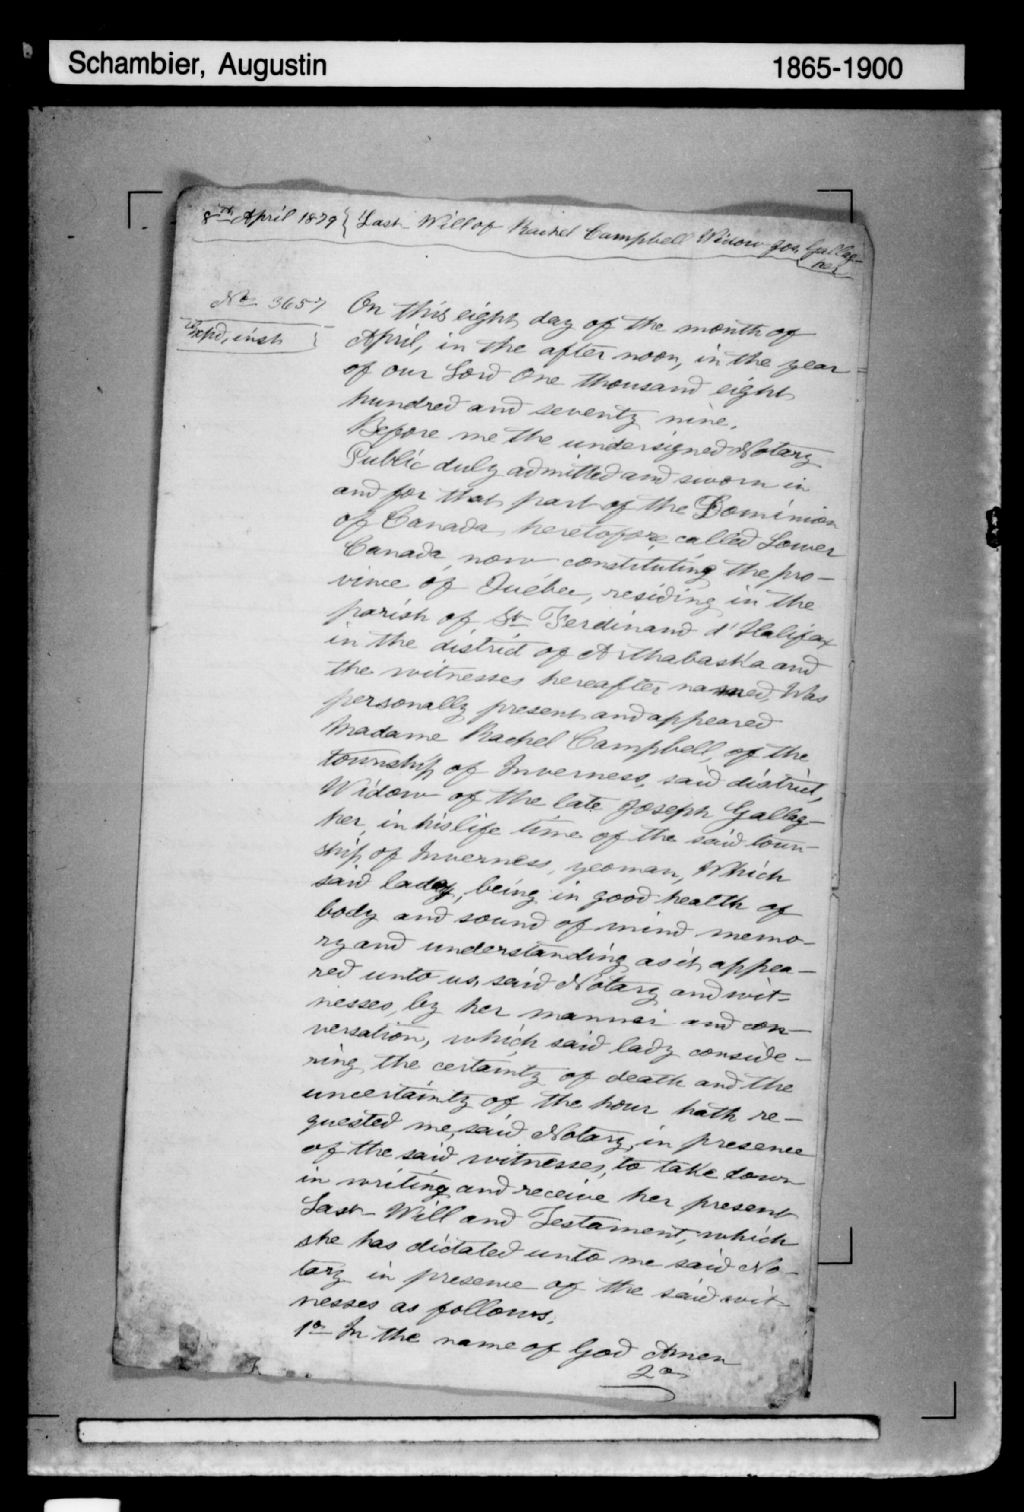 Schambier, Augustin 1865-1900
8th April 1879 { Last Will of Rachel Campbell Widow Jos. Gallag-
her
No 3657
expd, insh
On this eight day of the month of
April, in the after noon, in the year
of our Lord One thousand eight
hundred and seventy nine.
Before me the undersigned Notary
Public duly admitted and sworn in
and for that part of the Dominion
of Canada heretofore called Lower
Canada, now constituting the pro-
vince of Québec, residing in the
parish of St Ferdinand d'Halifax
in the district of Arthabaska and
the witnesses hereafter named, Was
personally present and appeared
Madame Rachel Campbell, of the
township of Inverness, said district,
Widow of the late Joseph Gallag-
her, in his life time of the said town-
ship of Inverness, yeoman, Which
said lady, being in good health of
body and sound of mind memo-
ry and understanding as it appea-
red unto us, said Notary and wit-
nesses, by her manner and con-
versation, which said lady conside-
ring the certainty of death and the
uncertainty of the hour hath re-
quested me, said Notary, in presence
of the said witnesses, to take down
in writing and receive her present
Last Will and Testament, which
she has dictated unto me said No-
tary in presence of the said wit-
nesses as follows.
1o In the name of God Amen
2o